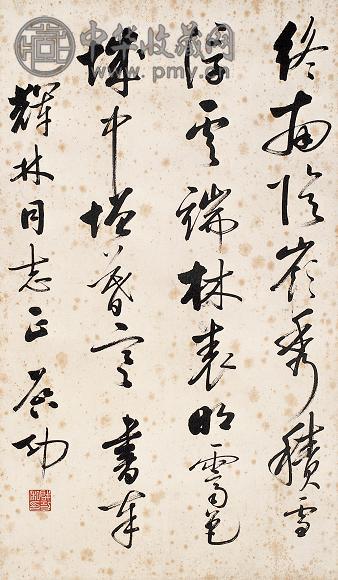 中华收藏网
www.pmy.cn
終南陰嶺秀積雪
浮雲端林表明霽色
城中增暮寒 書奉
輝林同志正 启功